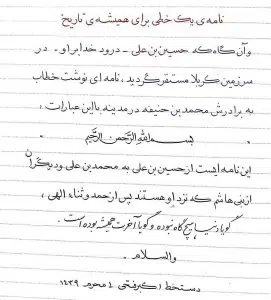 نامه ی یک خطی برای همیشه ی تاریخ
وآن گاه که حسین بن علی - درود خدا بر او - در
سرزمین کربلا مستقر گردید ، نامه ای نوشت خطاب
به برادرش محمد بن حنیفه در مدینه با این عبارات :
بسم الله الرحمن الرحیم
این نامه ایست از حسین بن علی به محمد بن علی و دیگران
از بنی هاشم که نزد او هستند پس از حمد و ثناء الهی ،
گویا دنیا هیچ گاه نبوده و گویا آخرت همیشه بوده است .
والسلام .
دستخط : محرم ۱۴۳۹